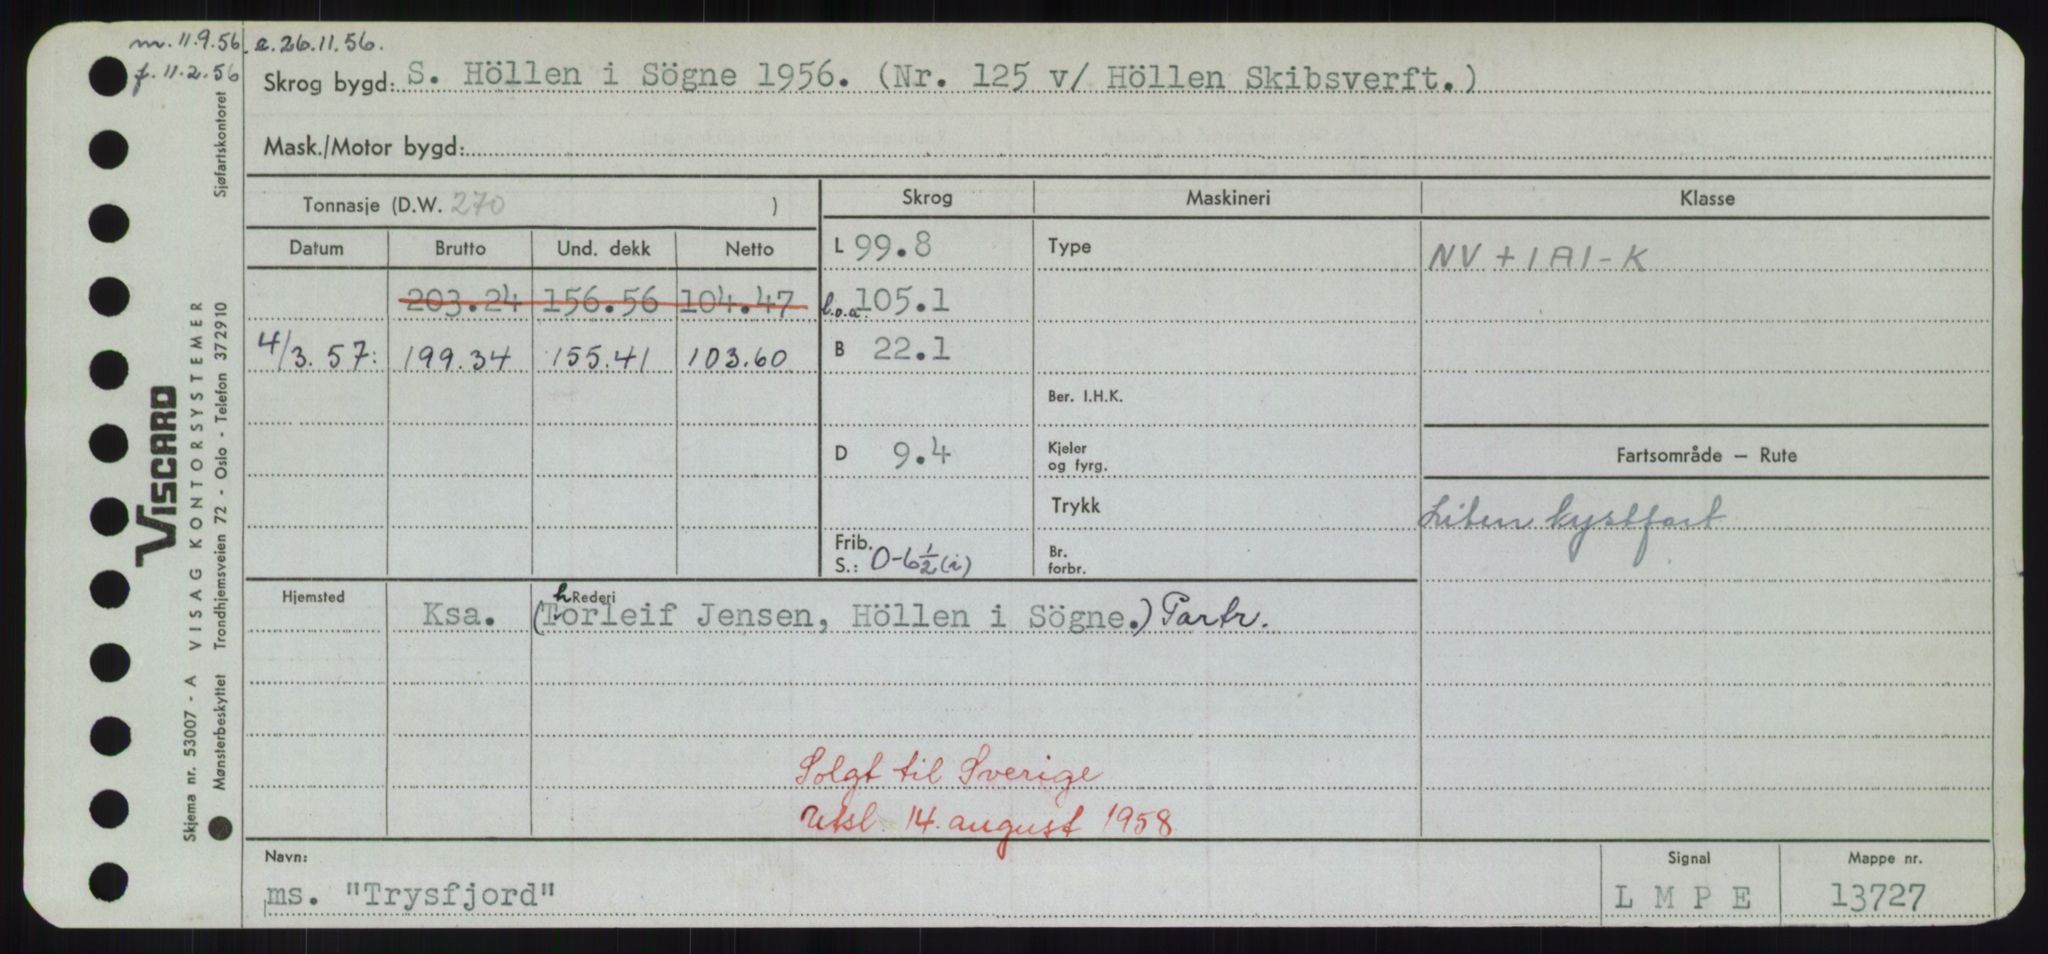 m. 11.9.56. e. 26.11.56.
f. 11.2.56
Skrog bygd: S. Höllen i Sögne 1956. (Nr. 125 v/ Höllen Skibsverft.)
Mask./Motor bygd:
Tonnasje (D.W. 270 )
Skrog Maskineri Klasse
Datum Brutto Und. dekk Netto
L 99.8 Type NV + 1A1-K
203.24 156.56 104.47 l.o.a. 105.1
4/3. 57: 199.34 155.41 103.60 B 22.1
Ber. I.H.K.
D 9.4 Kjeler og fyrg. Fartsområde – Rute
Trykk Liten kystfart
Frib. S.: 0-6 1/2 (i) Br. forbr.
Hjemsted Rederi
Ksa. (Thorleif Jensen, Höllen i Sögne.) Partr.
Solgt til Sverige
Utsl. 14. august 1958
Navn: Signal Mappe nr.
ms. "Trysfjord" L M P E 13727
VISCARD
Skjema nr. 53007 - A VISAG KONTORSYSTEMER
Mønsterbeskyttet Trondhjemsveien 72 - Oslo - Telefon 372910 Sjøfartskontoret